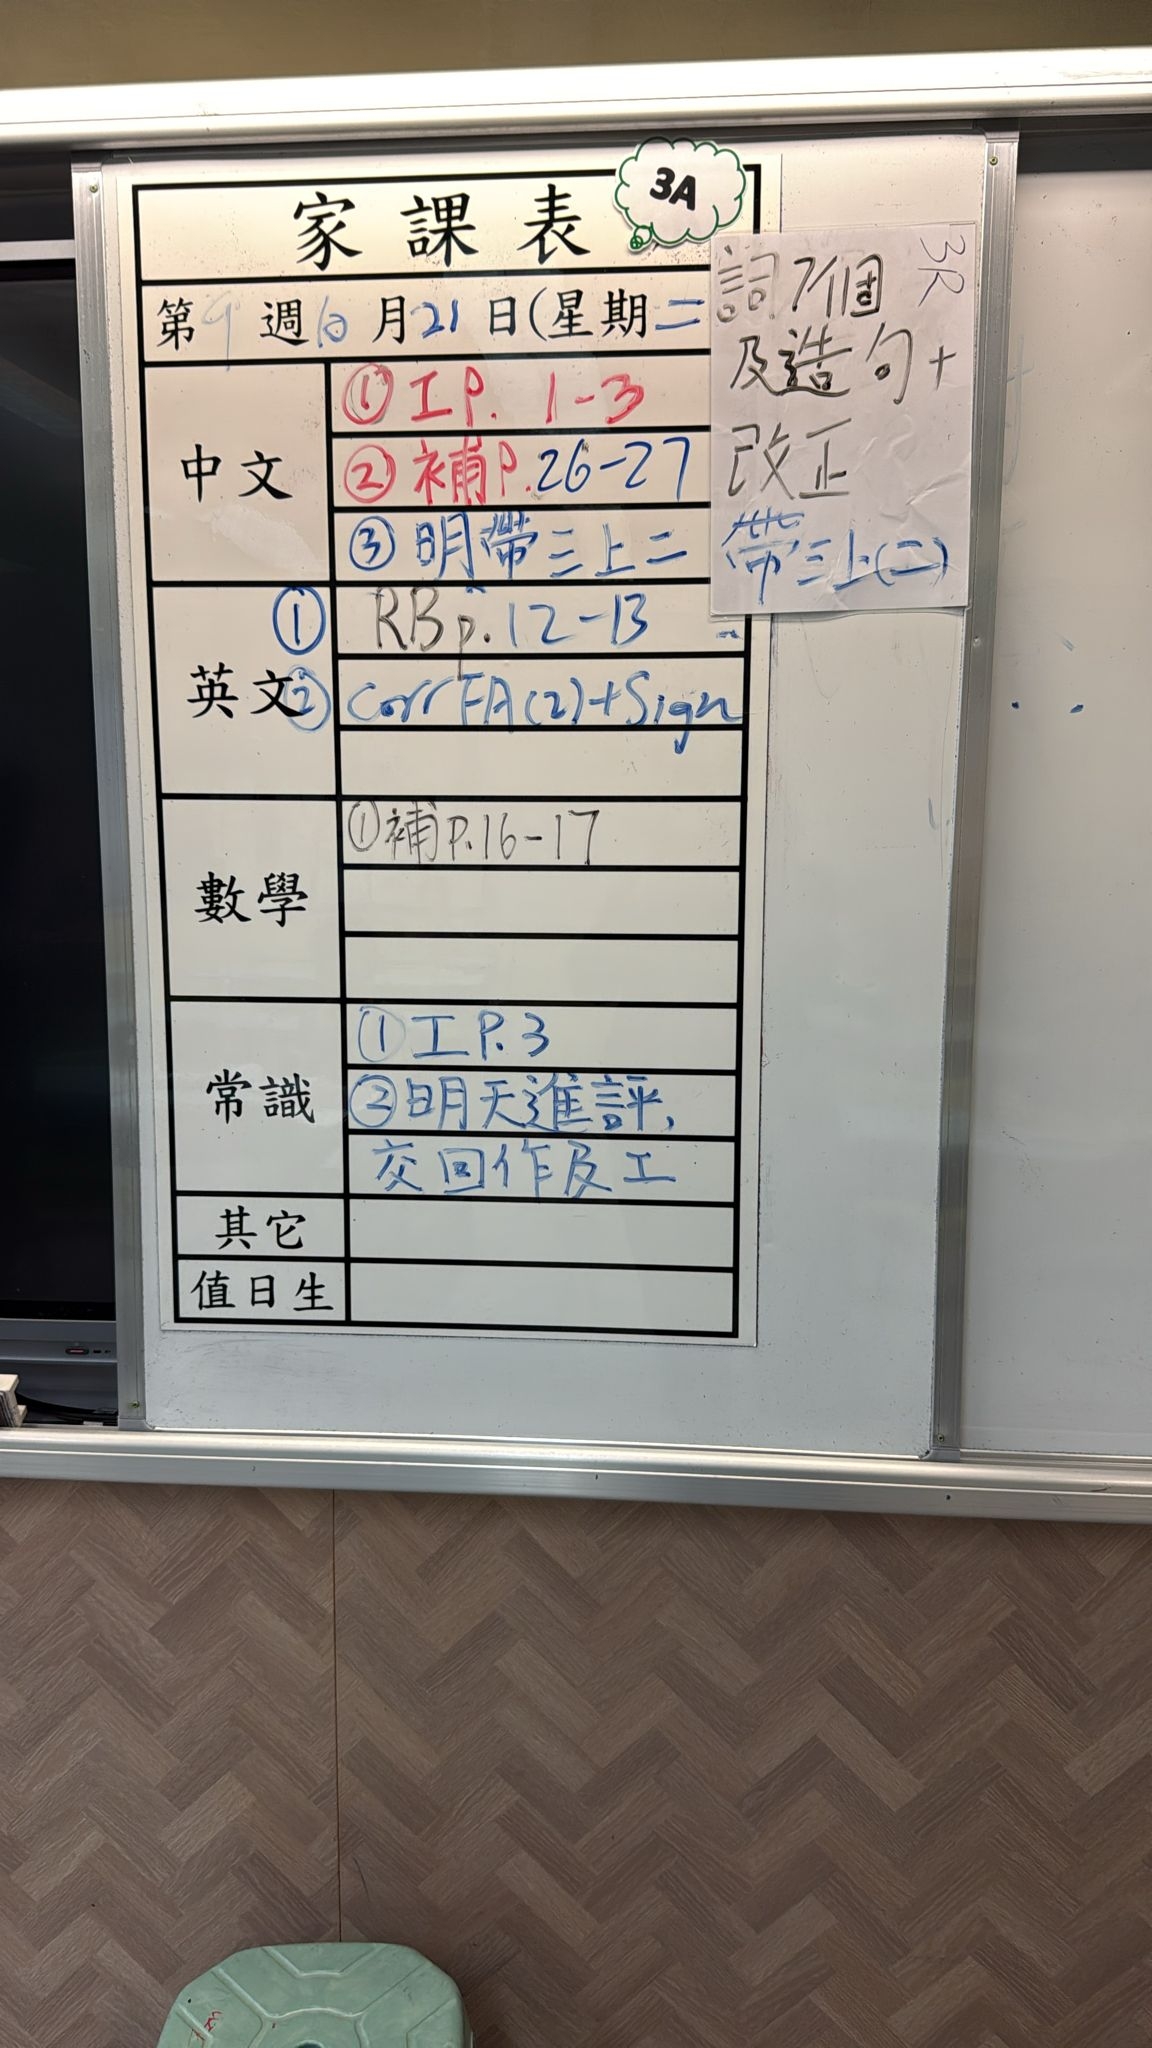 家課表
3A
第9週10月21日(星期二
中文
①工P. 1-3
②補P.26-27
③明帶三上二
英文
① RB p.12-13
② Corr FA(2)+Sign
數學
①補P.16-17
常識
①工P.3
②明天進評,
交回作及工
其它
值日生
3R
詞7個
及造句+
改正
帶三上(二)